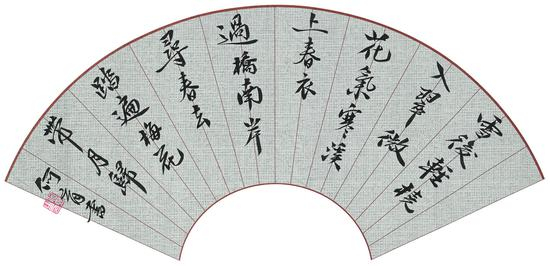 雪後輕橈
入翠微
花氣寒溪
上春衣
過橋南岸
尋春去
踏遍梅花
帶月歸
何 書